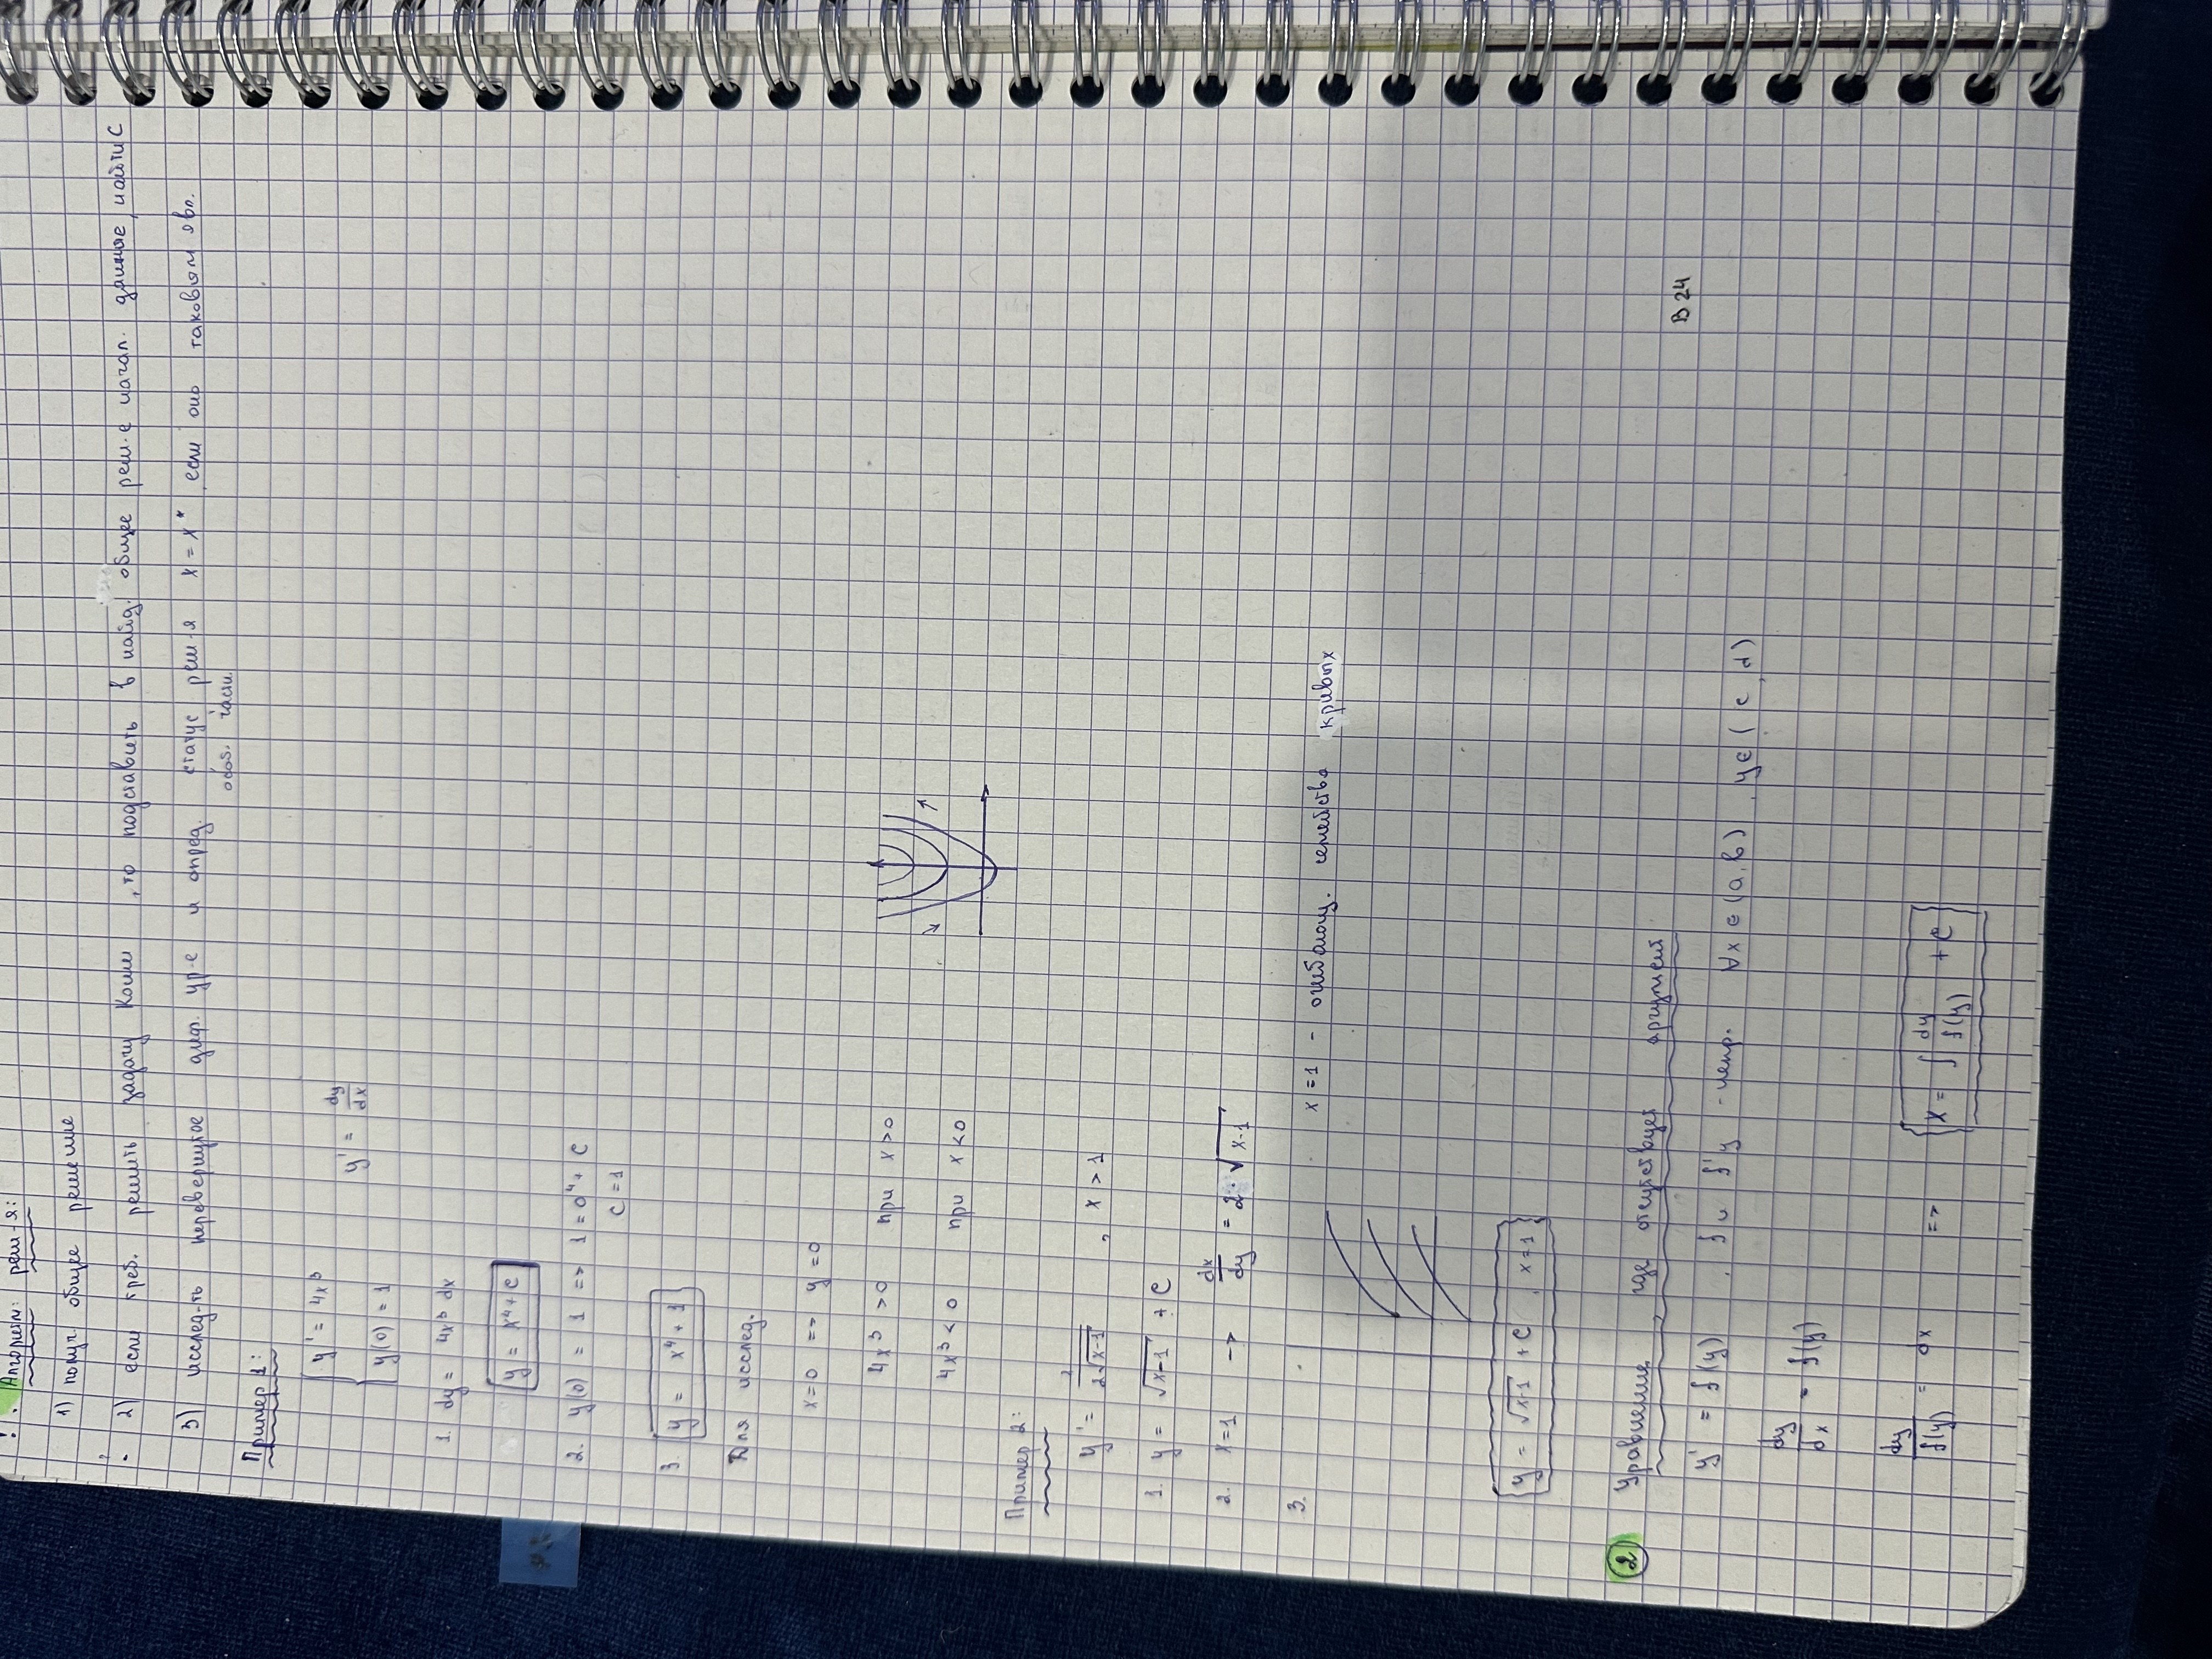 ! . Алгоритм реш-я:
1) получ. общее решение
2) если треб. решить задачу Коши, то подставить в найд. общее реш-е начал. данные, найти С
3) исслед-ть перевернутое диф. ур-е и опред. статус реш-я x = x* если оно таковым явл.
особ. частн.
Пример 1:
y' = 4x³
y' = dy/dx
y(0) = 1
1. dy = 4x³ dx
y = x⁴ + C
2. y(0) = 1 => 1 = 0⁴ + C
C = 1
3. y = x⁴ + 1
Для исслед.
x=0 => y=0
4x³ > 0 при x > 0
4x³ < 0 при x < 0
Пример 2:
y' = 1/(2√(x-1)) , x > 1
1. y = √(x-1) + C
2. x=1 -> dx/dy = 2·√(x-1)
3. x=1 - огибающ. семейства кривых
y = √(x-1) + C , x=1
2 Уравнение, где отсутствует аргумент
B 24
y' = f(y) , f и f'y - непр. ∀x ∈ (a,b) , y ∈ (c,d)
dy/dx = f(y)
dy/f(y) = dx => x = ∫ dy/f(y) + C